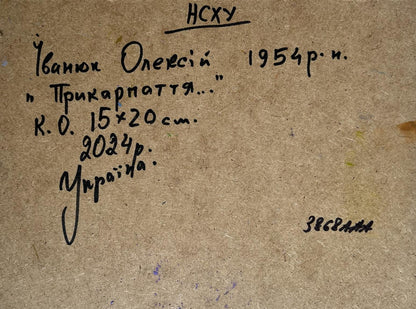 НСХУ
Іванюк Олексій 1954 р. н.
"Прикарпаття..."
К. О. 15×20 см.
2024р.
Україна.
3868ААА